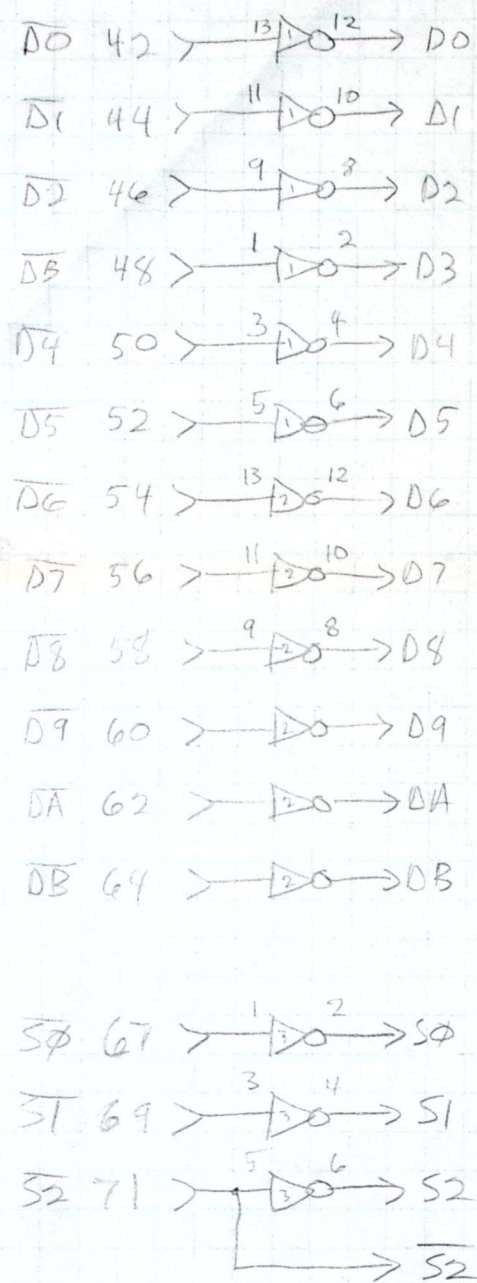 D̅0̅ 42 13 1 12 D0
D̅1̅ 44 11 1 10 D1
D̅2̅ 46 9 1 8 D2
D̅3̅ 48 1 1 2 D3
D̅4̅ 50 3 1 4 D4
D̅5̅ 52 5 1 6 D5
D̅6̅ 54 13 2 12 D6
D̅7̅ 56 11 2 10 D7
D̅8̅ 58 9 2 8 D8
D̅9̅ 60 2 D9
D̅A̅ 62 2 DA
D̅B̅ 64 2 DB
S̅Ø̅ 67 1 3 2 SØ
S̅1̅ 69 3 3 4 S1
S̅2̅ 71 5 3 6 S2
S̅2̅